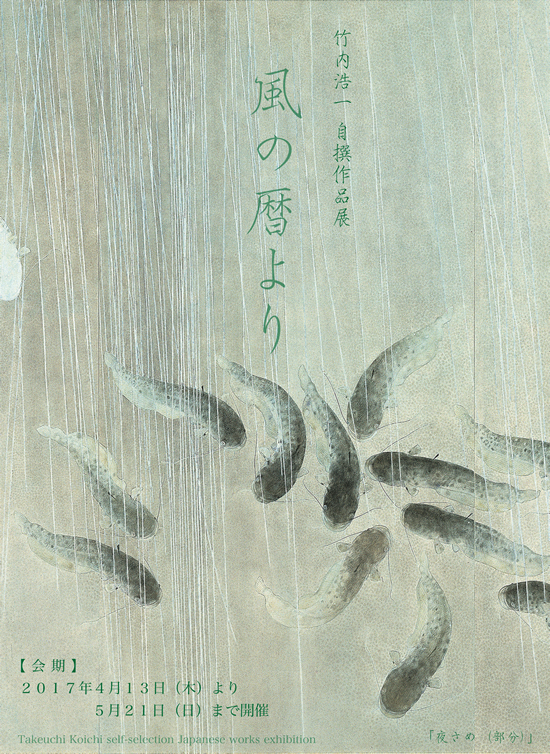 竹内浩一 自撰作品展
風の暦より
【会期】
2017年4月13日（木）より
5月21日（日）まで開催
Takeuchi Koichi self-selection Japanese works exhibition
『夜さめ （部分）』